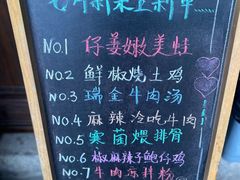 NO.1 仔姜嫩美蛙
NO.2 鲜椒烧土鸡
NO.3 瑞金牛肉汤
NO.4 麻辣冷吃牛肉
NO.5 寒菌煨排骨
NO.6 椒麻辣子鲍仔鸡
NO.7 牛肉凉拌粉